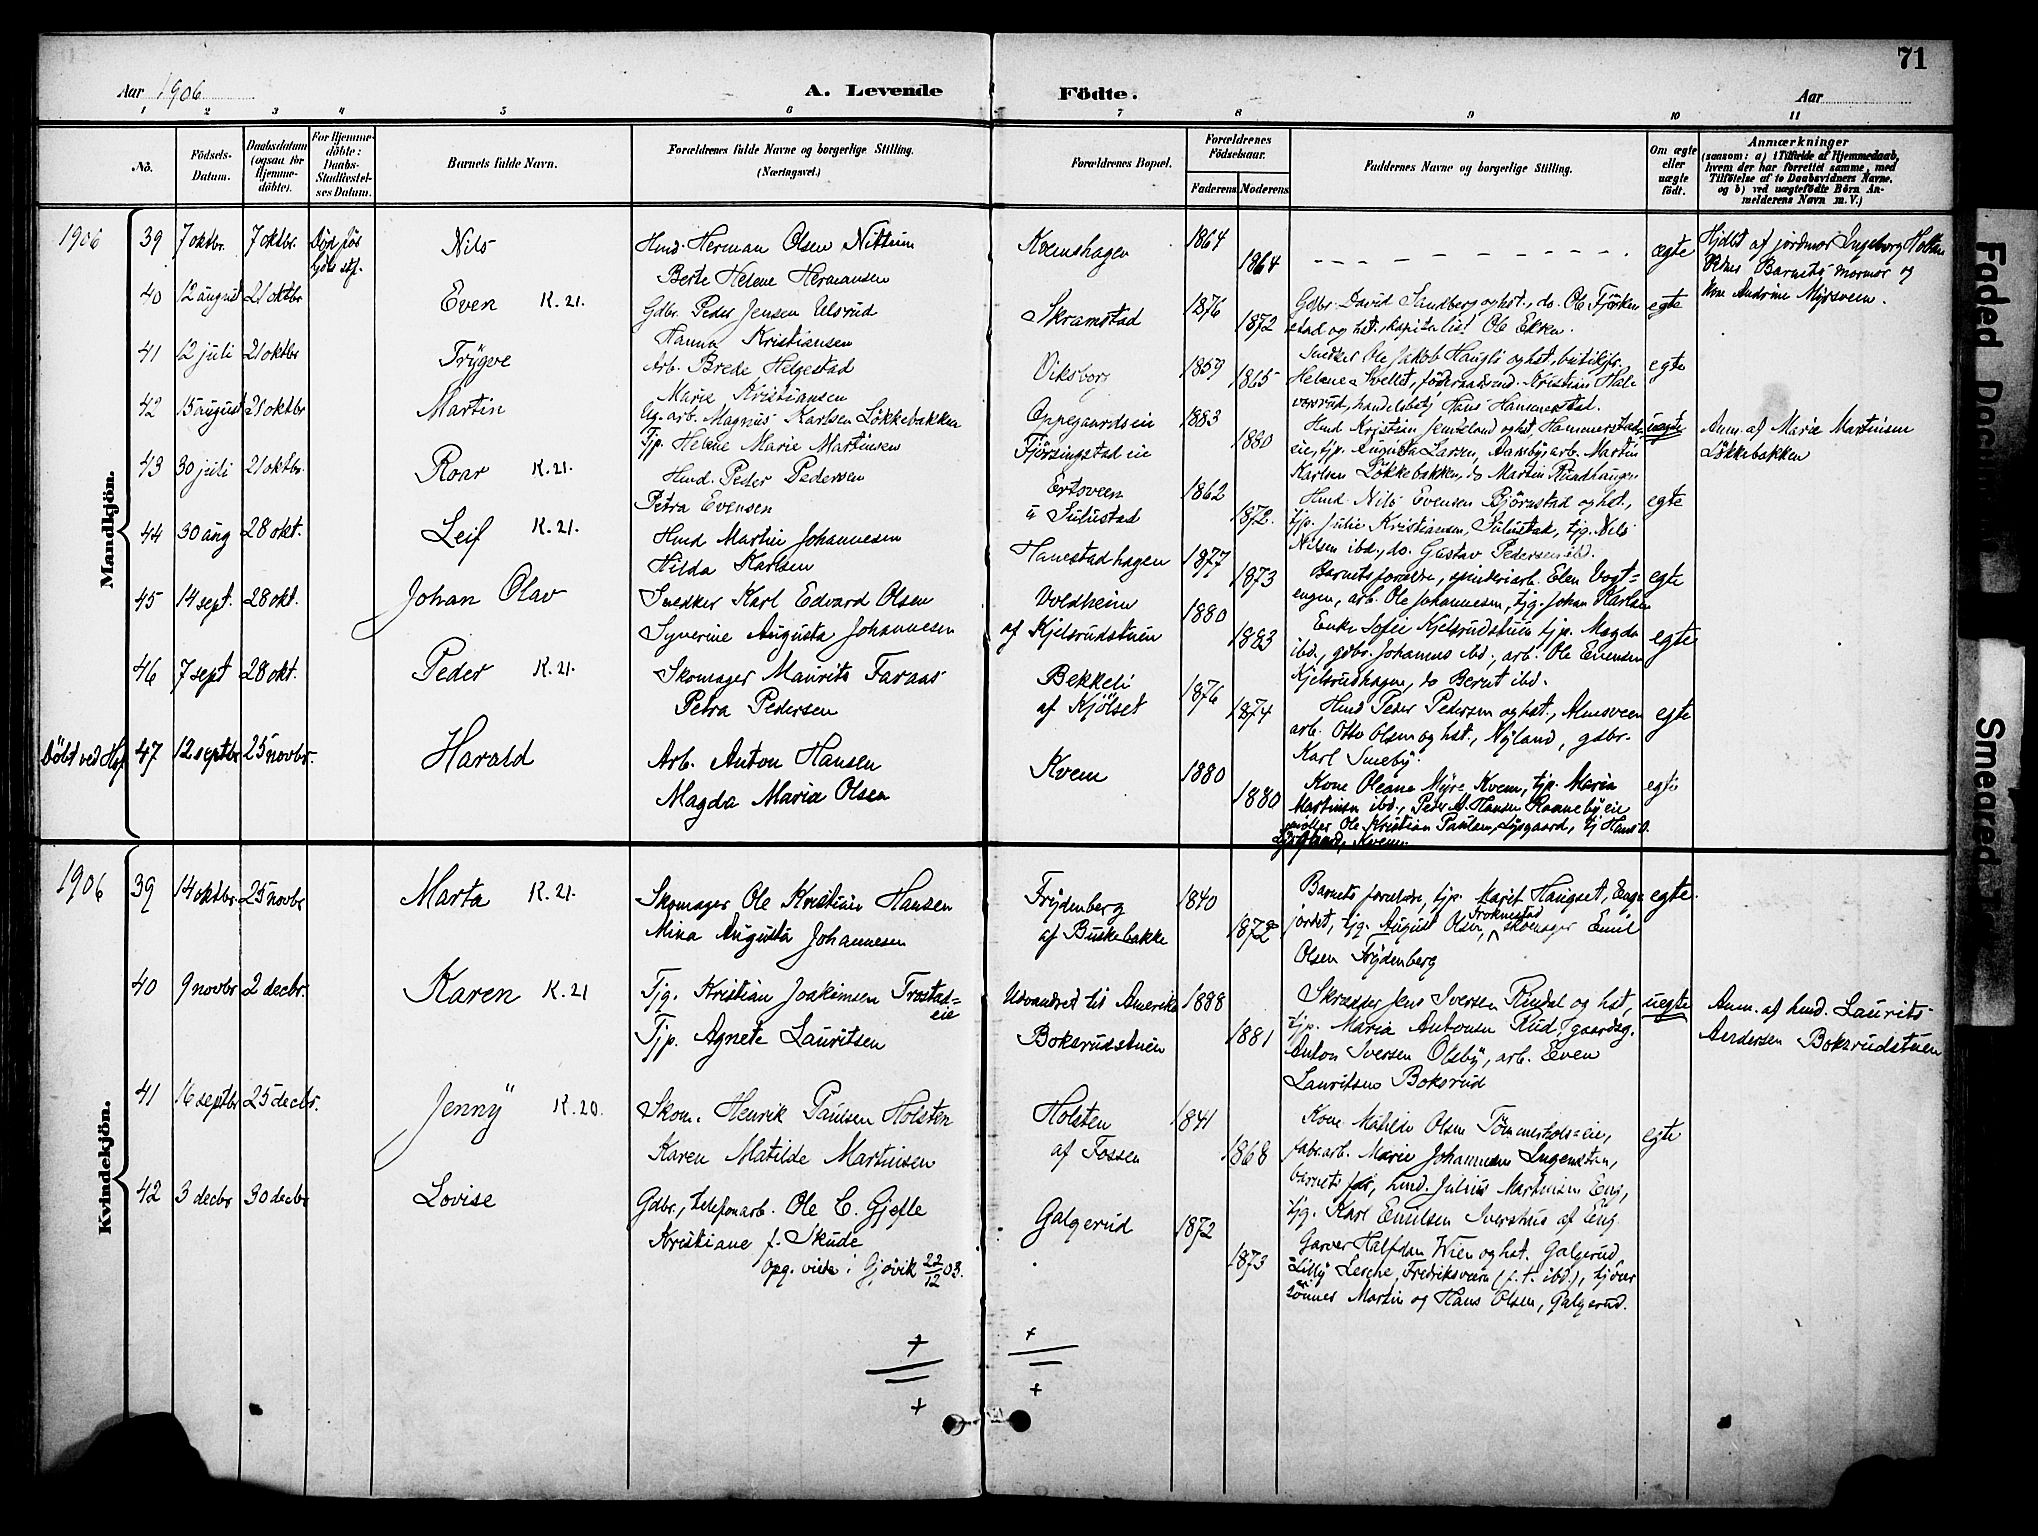 71
Aar 1906
A. Levende
Födte.
Aar
1 2 3 4 5 6 7 8 9 10 11
No.
Födsels-
Datum.
Daabsdatum
(ogsaa for
Hjemme-
döbte).
For Hjemme-
döbte:
Daabs-
Stadfæstel-
ses Datum.
Barnets fulde Navn.
Forældrenes fulde Navne og borgerlige Stilling.
(Næringsvei.)
Forældrenes Bopæl.
Forældrenes
Födselsaar.
Faderens
Moderens
Faddernes Navne og borgerlige Stilling.
Om ægte
eller
uægte
födt.
Anmærkninger
(saasom: a) i Tilfælde af Hjemmedaab,
hvem der har forrettet samme, med
Tilföielse af to Daabsvidners Navne,
og b) ved uægtefödte Börn An-
melderens Navn m. V.)
Mandkjön.
1906 39 7 oktbr. 7 oktbr. Död før
Nils
Hmd. Herman Olsen Nittum
Berte Helene Hermansen
Kvemshagen
1864
1864
ægte
Hjdbt af jordmor Ingeborg
Barnets mormor og
kone Andrine Myrsveen.
40 12 august 21 oktbr
Even K. 21.
Gdbr. Peder Jensen Ulsrud
Hanna Kristiansen
Skramstad
1876
1872
Gdbr. David Sandberg og hst., do. Ole Fjørken
stad og hst., kapitalist Ole Ekren.
egte
41 12 juli 21 oktbr
Trygve
Arb. Brede Helgestad
Marie Kristiansen
Viksborg
1859
1865
Snedker Ole Jakob Haugli og hst., butikjfr.
Helene Kvellet, föderaadsmd. Kristian Hal-
versrud, handelsbetj Hans Hammerstad.
egte
42 15 august 21 oktbr
Martin
Ug. arb. Magnus Karlsen Løkkebakken
Tjp. Helene Marie Martinsen
Oppegaardseie
Fjørsingstad eie
1883
1880
Hmd Kristian og hst, Hammerstads-
eie, tjp. Augusta Larsen, arb. Martin
Karlsen Løkkebakken, do Martin Rundhaugen
uægte
Anm. af Marie Martinsen
Løkkebakken
43 30 juli 21 oktbr.
Roar K. 21.
Hmd. Peder Pedersen
Petra Evensen
Ertsveen
u Sulustad
1862
1872.
Hmd. Nils Evensen Björnstad og hst.,
tjp. Julie Kristiansen, Sulustad, tjg. Nils
Nilsen ibd., do. Gustav Pedersen ibd.
egte
44 30 aug 28 okt.
Leif K. 21.
Hmd Martin Johannesen
Hilda Karlsen
Hanestadhagen
1877
1873
Barnets forældre, spinderiarb. Elen Vogt-
engen, arb. Ole Johannesen, tjg. Johan Karlsen
egte
45 14 sept. 28 okt.
Johan Olav
Snedker Karl Edvard Olsen
Syverine Augusta Johannesen
Voldheim
af Kjelsrudstuen
1880
1883
Enke Sofie Kjelsrudstuen tjp. Magda
ibd., gdbr. Johannes ibd., arb. Ole Evensen
Kjelsrudhagen, do Bernt ibd.
egte
46 7 sept 28 okt.
Peder K. 21.
Skomager Maurits Faraas
Petra Pedersen
Bekkeli
af Kjölset
1876
1874
Hmd Peder Pedersen og hst., Almsveen
arb. Otto Olsen og hst., Nyland, gdbr.
Karl Smeby.
egte
Döbt ved Hof 47 12 septbr 25 novbr.
Harald
Arb. Anton Hansen
Magda Marie Olsen
Kvem
1880
1880
Kone Oleane Myre Kvem, tjp. Maria
Martinsen ibd., Peder A. Hansen Rannebyeie
møller Ole Kristian Paulsen, Lysgaard, tj Hans O.
Lysgaard, Kvem.
egte
Kvindekjön.
1906 39 14 oktbr. 25 novbr
Marta K. 21.
Skomager Ole Kristian Hansen
Mina Augusta Johannesen
Frydenberg
af Buskebakke
1840
1872
Barnets forældre, tjp. Marit Haugset, Enge
jordet, tjg. August Olsen, skomager Emil
Olsen Frydenberg
egte.
40 9 novbr 2 decbr.
Karen K. 21
Tjg. Kristian Joakimsen Trostad-
eie
Tjp. Agnete Lauritsen
Udvandret til Amerika
Boksrudstuen
1888
1881
Skrædder Jens Iversen Rindal og hst,
tjp. Maria Antonsen Rud, gaardsg.
Anton Iversen Olsby, arb. Even
Lauritsen Boksrud
uegte
Anm. af hmd. Laurits
Andersen Boksrudstuen
41 16 septbr 25 decbr.
Jenny K. 20.
Skom. Henrik Paulsen Holsten
Karen Matilde Martinsen
Holsten
af Fossen
1841
1868
Kone Matilde Olsen Tömmerhols-eie,
fabr.arb. Marie Johannesen Engenstøen,
barnets far, hmd. Julius Martinsen Eng,
tjg. Karl Emilsen Iverstuen af Eng.
egte
42 3 decbr 30 decbr
Lovise
Gdbr., telefonarb. Ole C. Gjefle
Kristiane f. Skude
Opg. viede i Gjövik 22/12 03.
Galgerud
1872
1873
Garver Halfdan Wien og hst. Galgerud,
Lilly Lerche, Fredriksveien (f. t. ibd.), tjener
sönner Martin og Hans Olsen, Galgerud.
Faded Document
Smeared